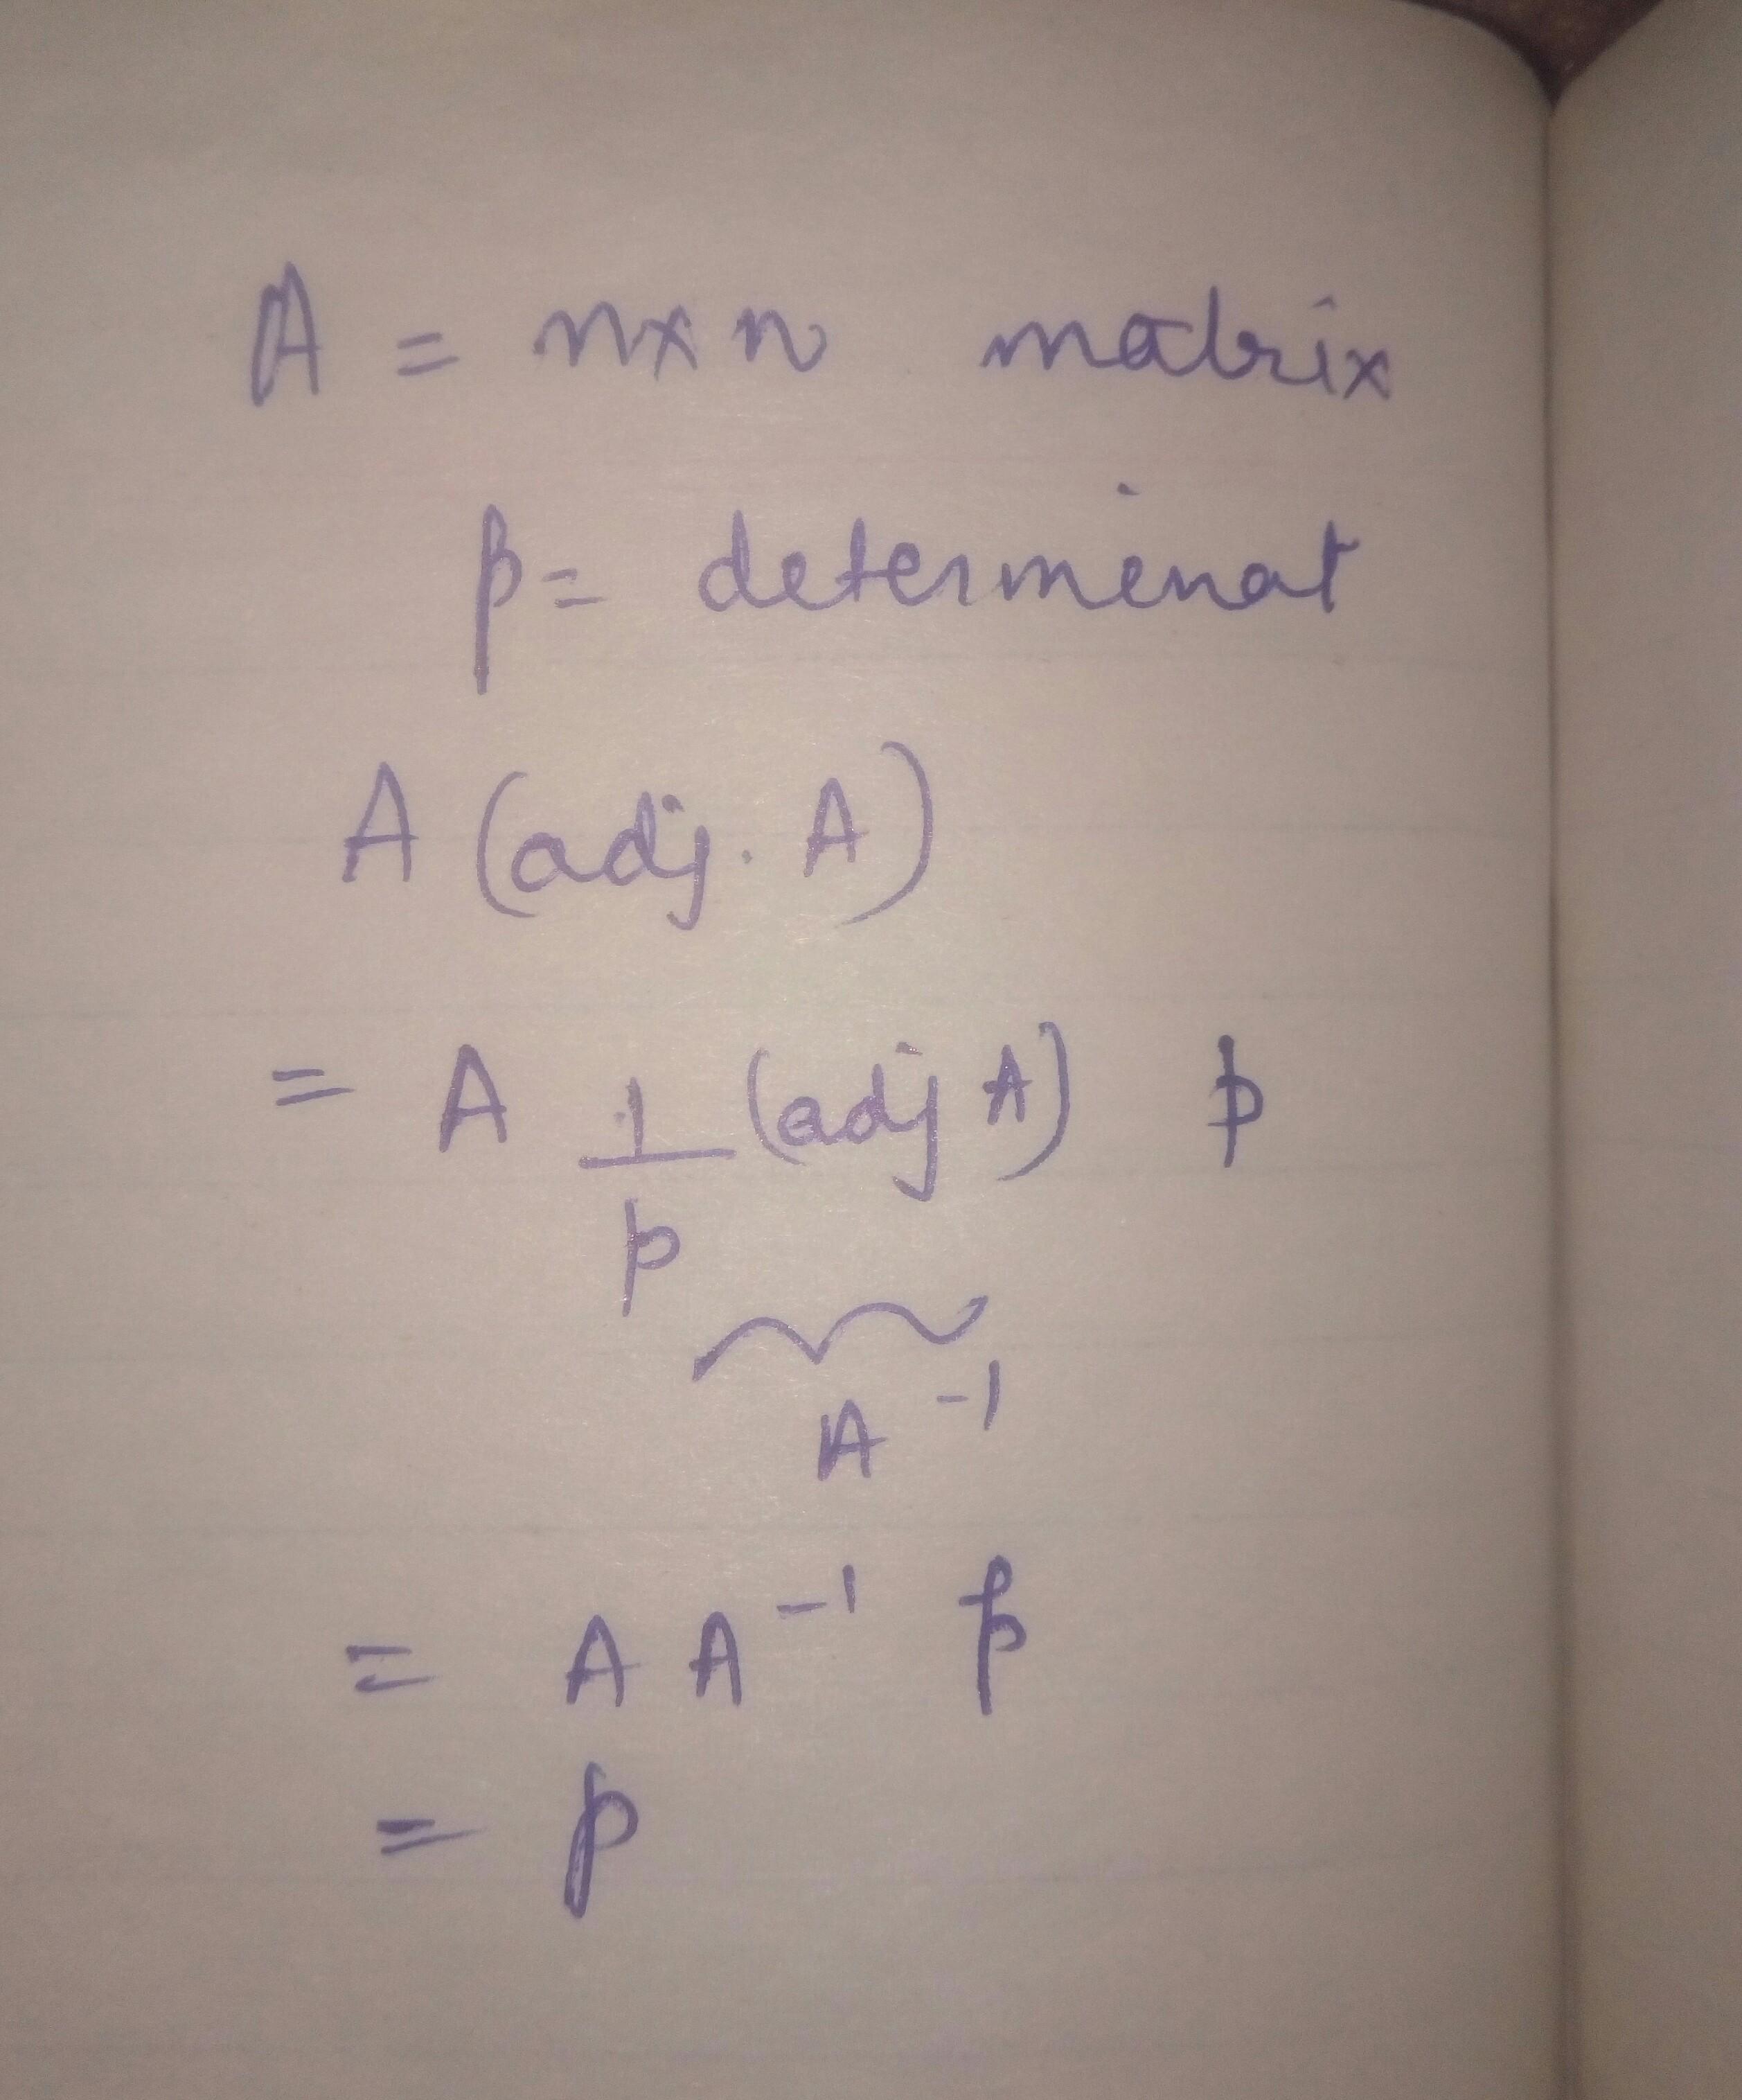 A = n×n matrix
p = determenat
A (adj. A)
= A 1/p (adj A) p
A⁻¹
= A A⁻¹ p
= p